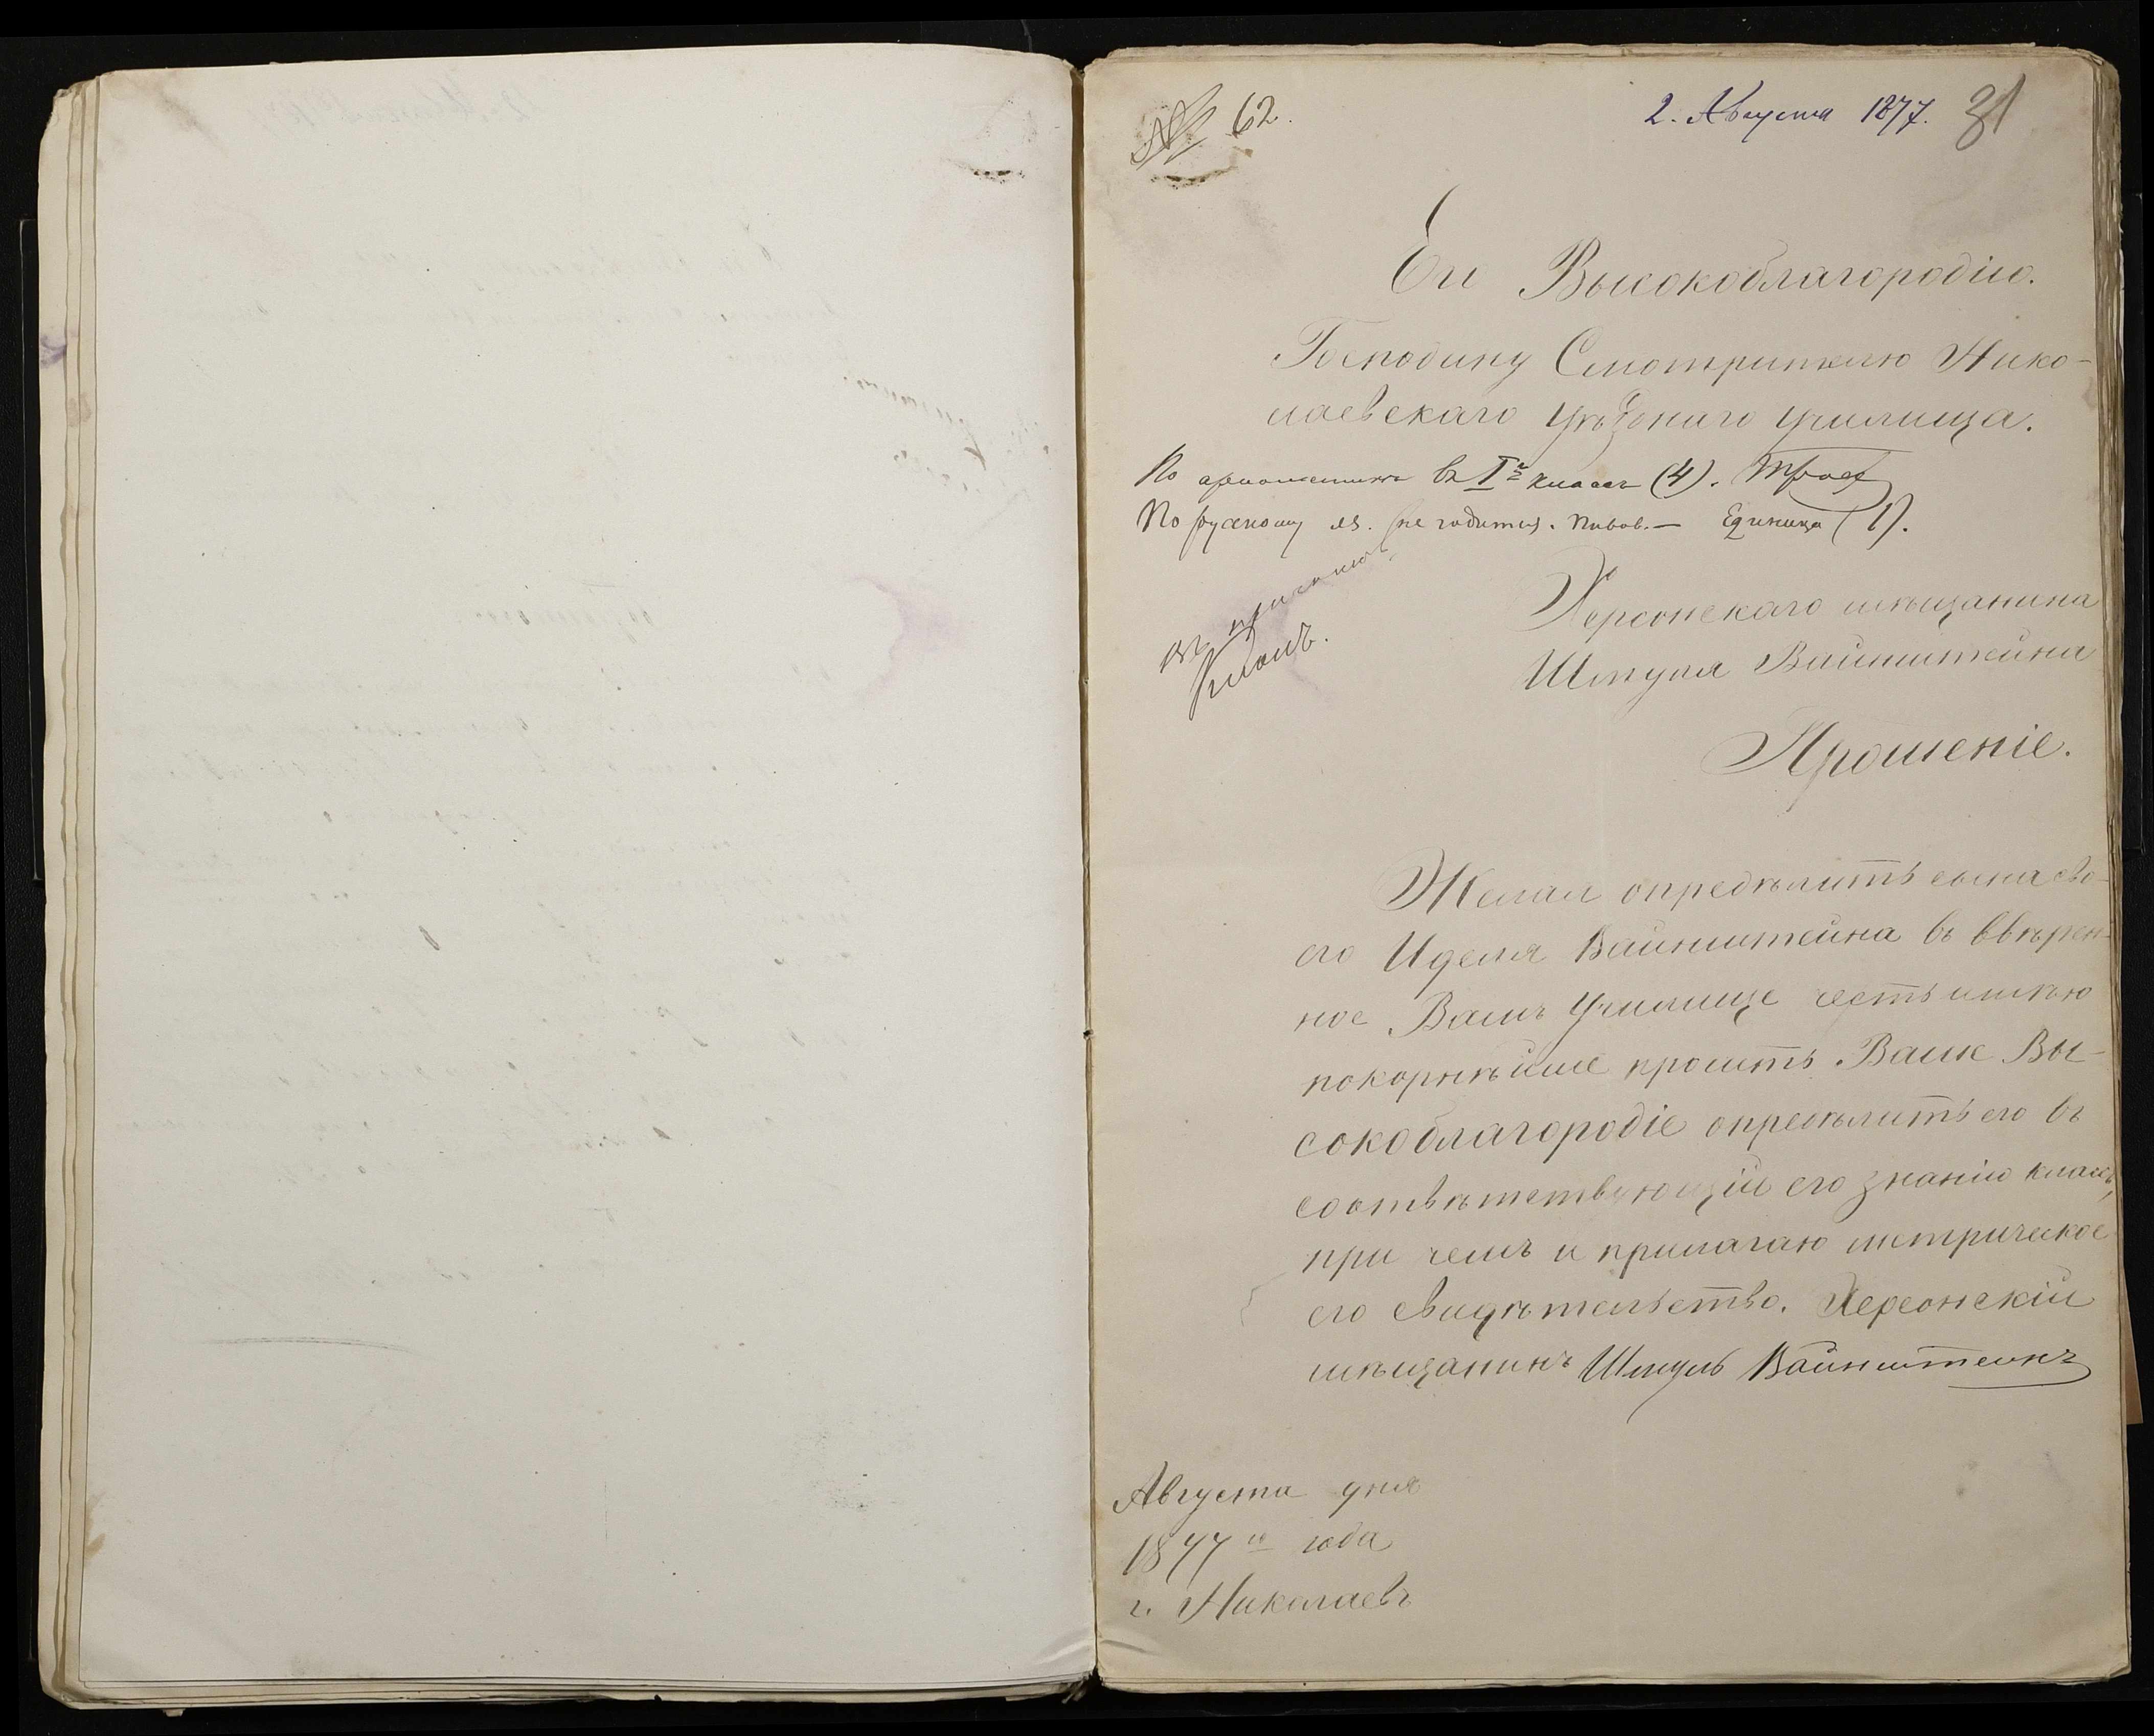 № 62.
2. Августа 1877. 31
Его Высокоблагородію.
Господину Смотрителю Нико-
лаевскаго Уѣзднаго Училища.
По ариөметикѣ въ I й классъ (4).
По русскому яз. не годится. Единица (1).
въ приготов.
классъ.
Херсонскаго мѣщанина
Шмуля Вайнштейна
Прошеніе.
Желая опредѣлить сына сво-
его Иделя Вайнштейна въ ввѣрен-
ное Вамъ Училище честь имѣю
покорнѣйше просить Ваше Вы-
сокоблагородіе опредѣлить его въ
соотвѣтствующій его знанію классъ,
при чемъ и прилагаю метрическое
его свидѣтельство. Херсонскій
мѣщанинъ Шмуль Вайнштейнъ
Августа дня
1877 го года
г. Николаевъ